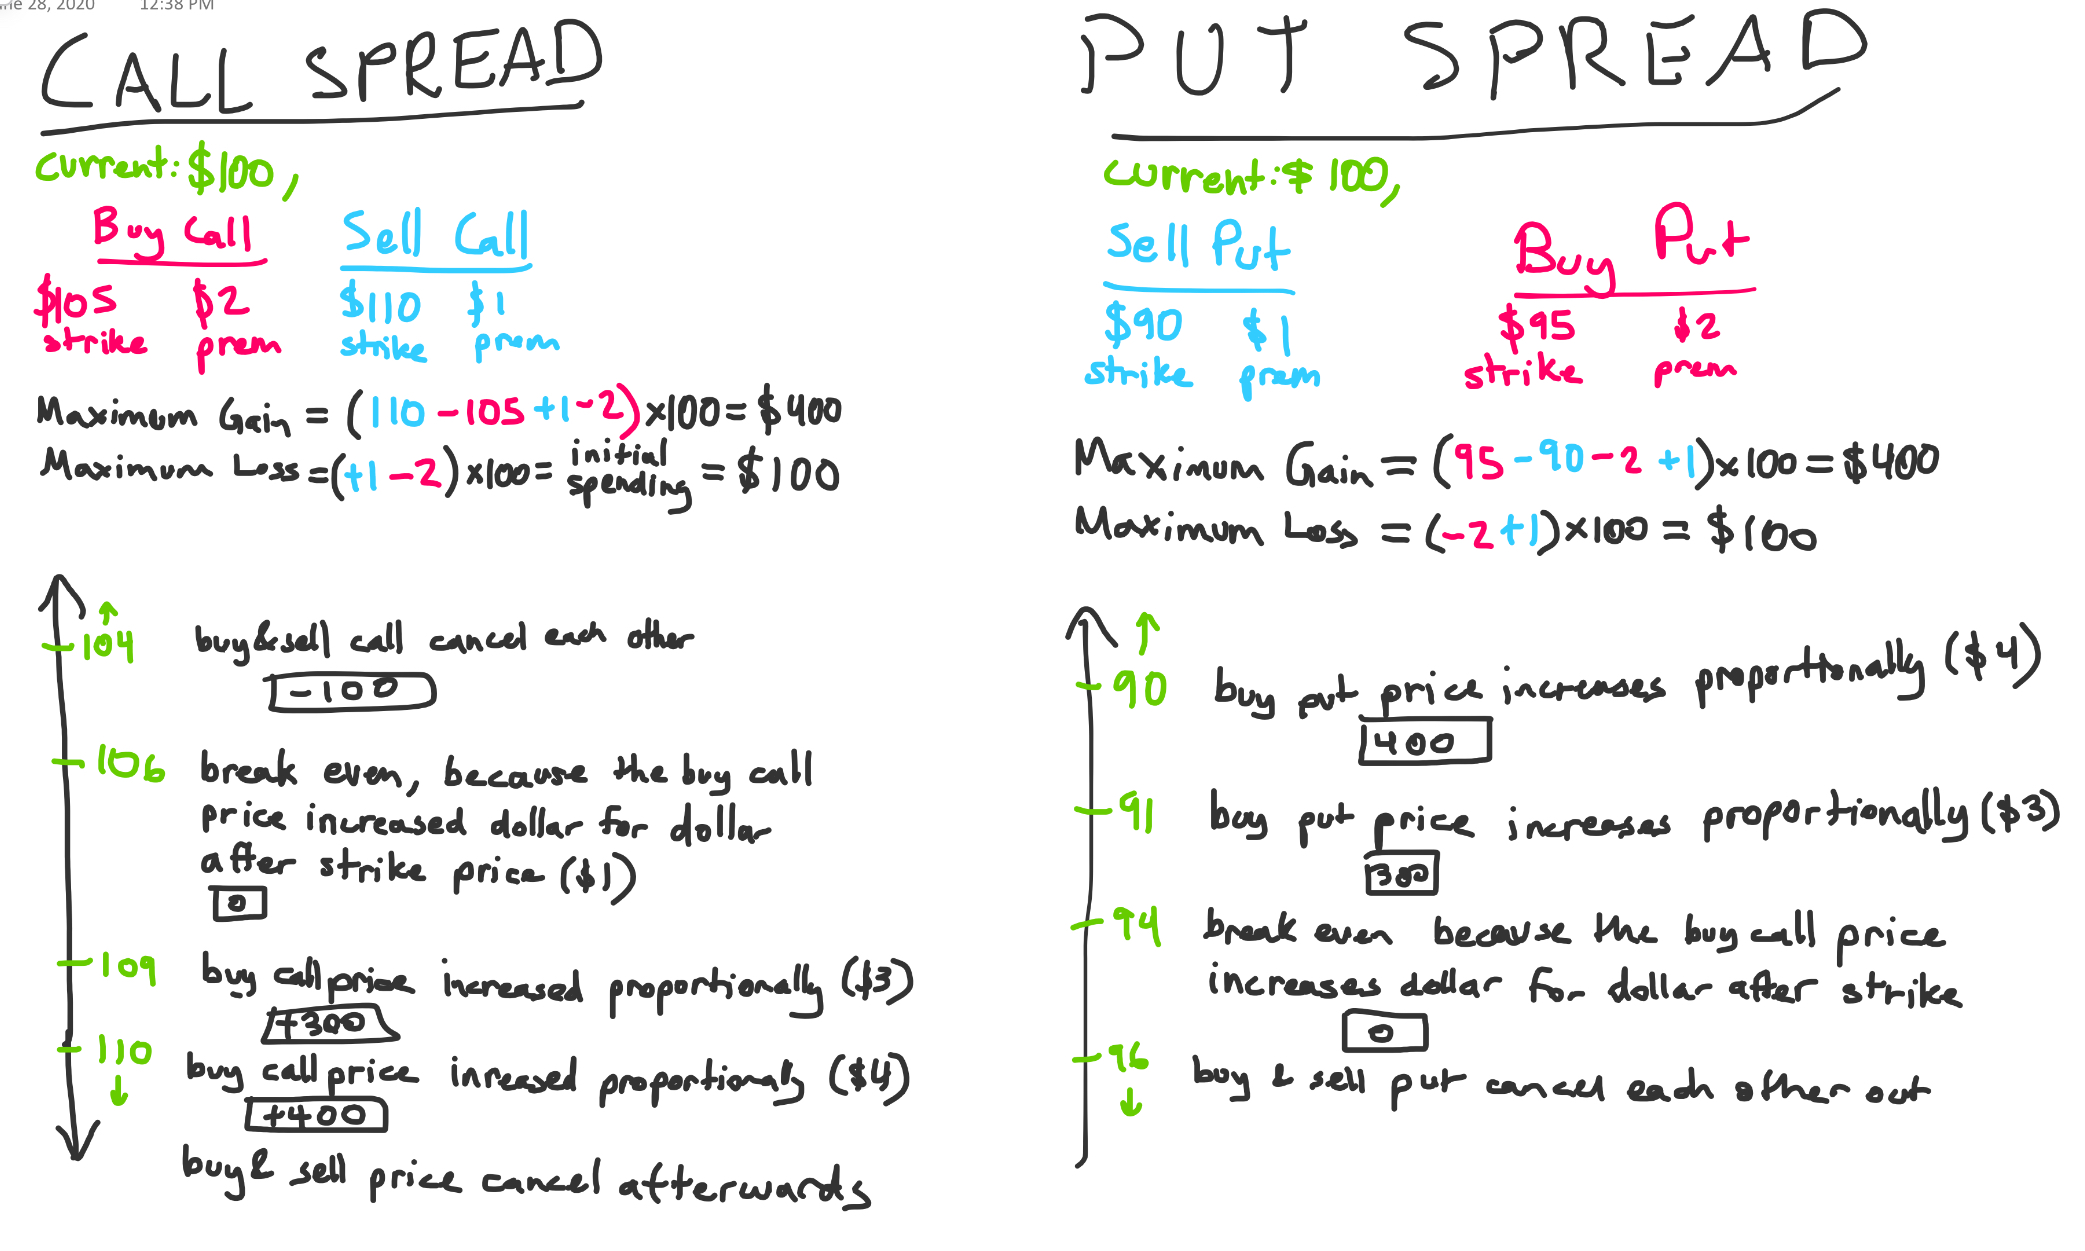 June 28, 2020 12:38 PM
CALL SPREAD
current: $100,
Buy Call Sell Call
$105 $2 $110 $1
strike prem strike prem
Maximum Gain = (110 - 105 + 1 - 2) x100 = $400
Maximum Loss = (+1 - 2) x100 = initial spending = $100
↑
104 buy & sell call cancel each other
-100
106 break even, because the buy call
price increased dollar for dollar
after strike price ($1)
0
109 buy call price increased proportionally ($3)
+300
110 buy call price inreased proportionally ($4)
↓
+400
buy & sell price cancel afterwards
PUT SPREAD
current: $100,
Sell Put Buy Put
$90 $1 $95 $2
strike prem strike prem
Maximum Gain = (95 - 90 - 2 + 1) x100 = $400
Maximum Loss = (-2 + 1) x100 = $100
↑
90 buy put price increases proportionally ($4)
400
91 buy put price increases proportionally ($3)
300
94 break even because the buy call price
increases dollar for dollar after strike
0
96 buy & sell put cancel each other out
↓